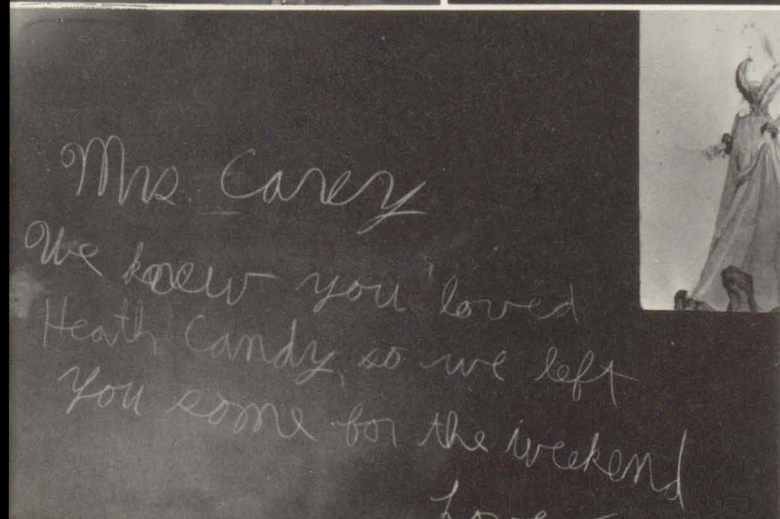 Mrs. Carey
We knew you loved
Heath Candy, so we left
you some for the weekend
Love